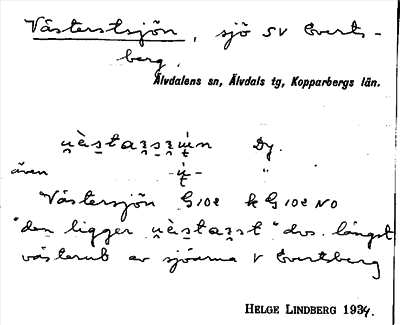 Västerstsjön, sjö SV Everts-
berg.
Älvdalens sn, Älvdals tg, Kopparbergs län.
Dy.
även "
Västersjön G10e k G10e NO
"den ligger " dvs. längst
västerut av sjöarna V Evertsberg
HELGE LINDBERG 1934.